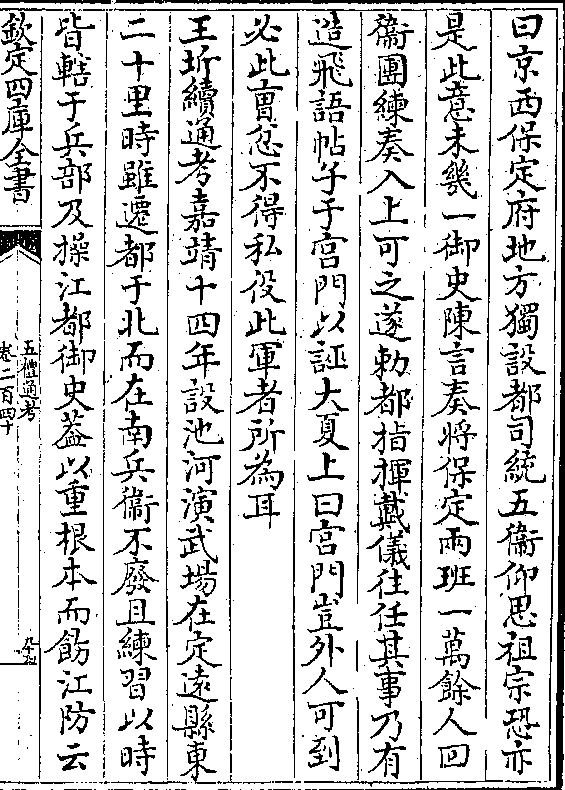 曰京西保定府地方獨設都司統五衞仰思祖宗恐亦
是此意未幾一御史陳言奏將保定兩班一萬餘人回
衞團練奏入上可之遂勅都指揮戴儀往任其事乃有
造飛語帖子于宫門以誣大夏上曰宫門豈外人可到
必此曹忿不得私役此軍者所為耳
王圻續通考嘉靖十四年設池河演武場在定遠縣東
二十里時雖遷都于北而在南兵衞不廢且練習以時
皆轄于兵部及操江都御史葢以重根本而飭江防云
欽定四庫全書
五禮通考
卷二百四十